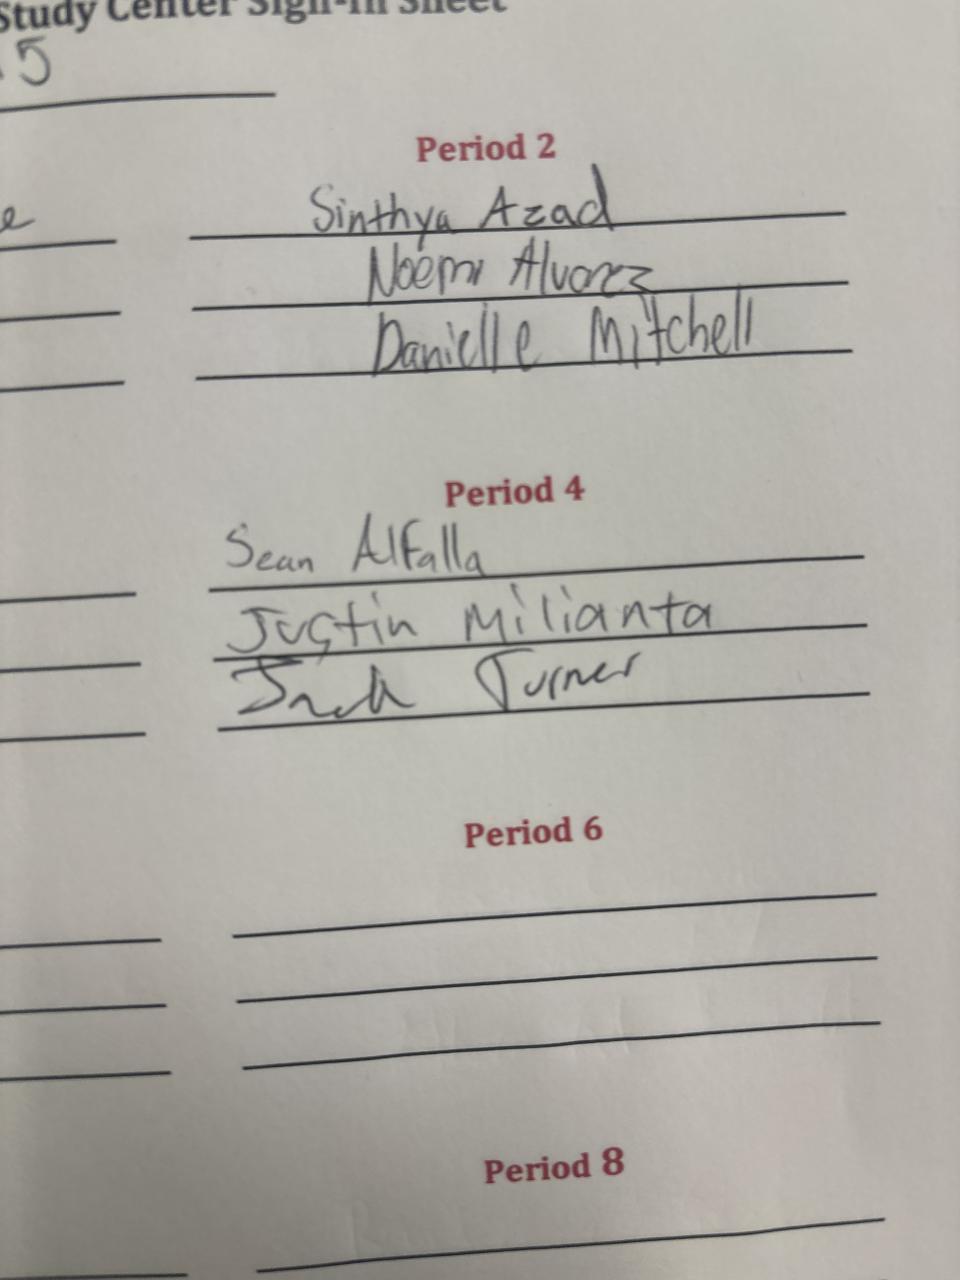 Study Center Sign-In Sheet
15
Period 2
e
Sinthya Azad
Noemi Alvarez
Danielle Mitchell
Period 4
Sean Alfalla
Justin Milianta
Turner
Period 6
Period 8